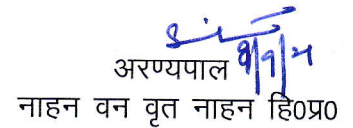 अरण्यपाल
नाहन वन वृत नाहन हि0प्र0